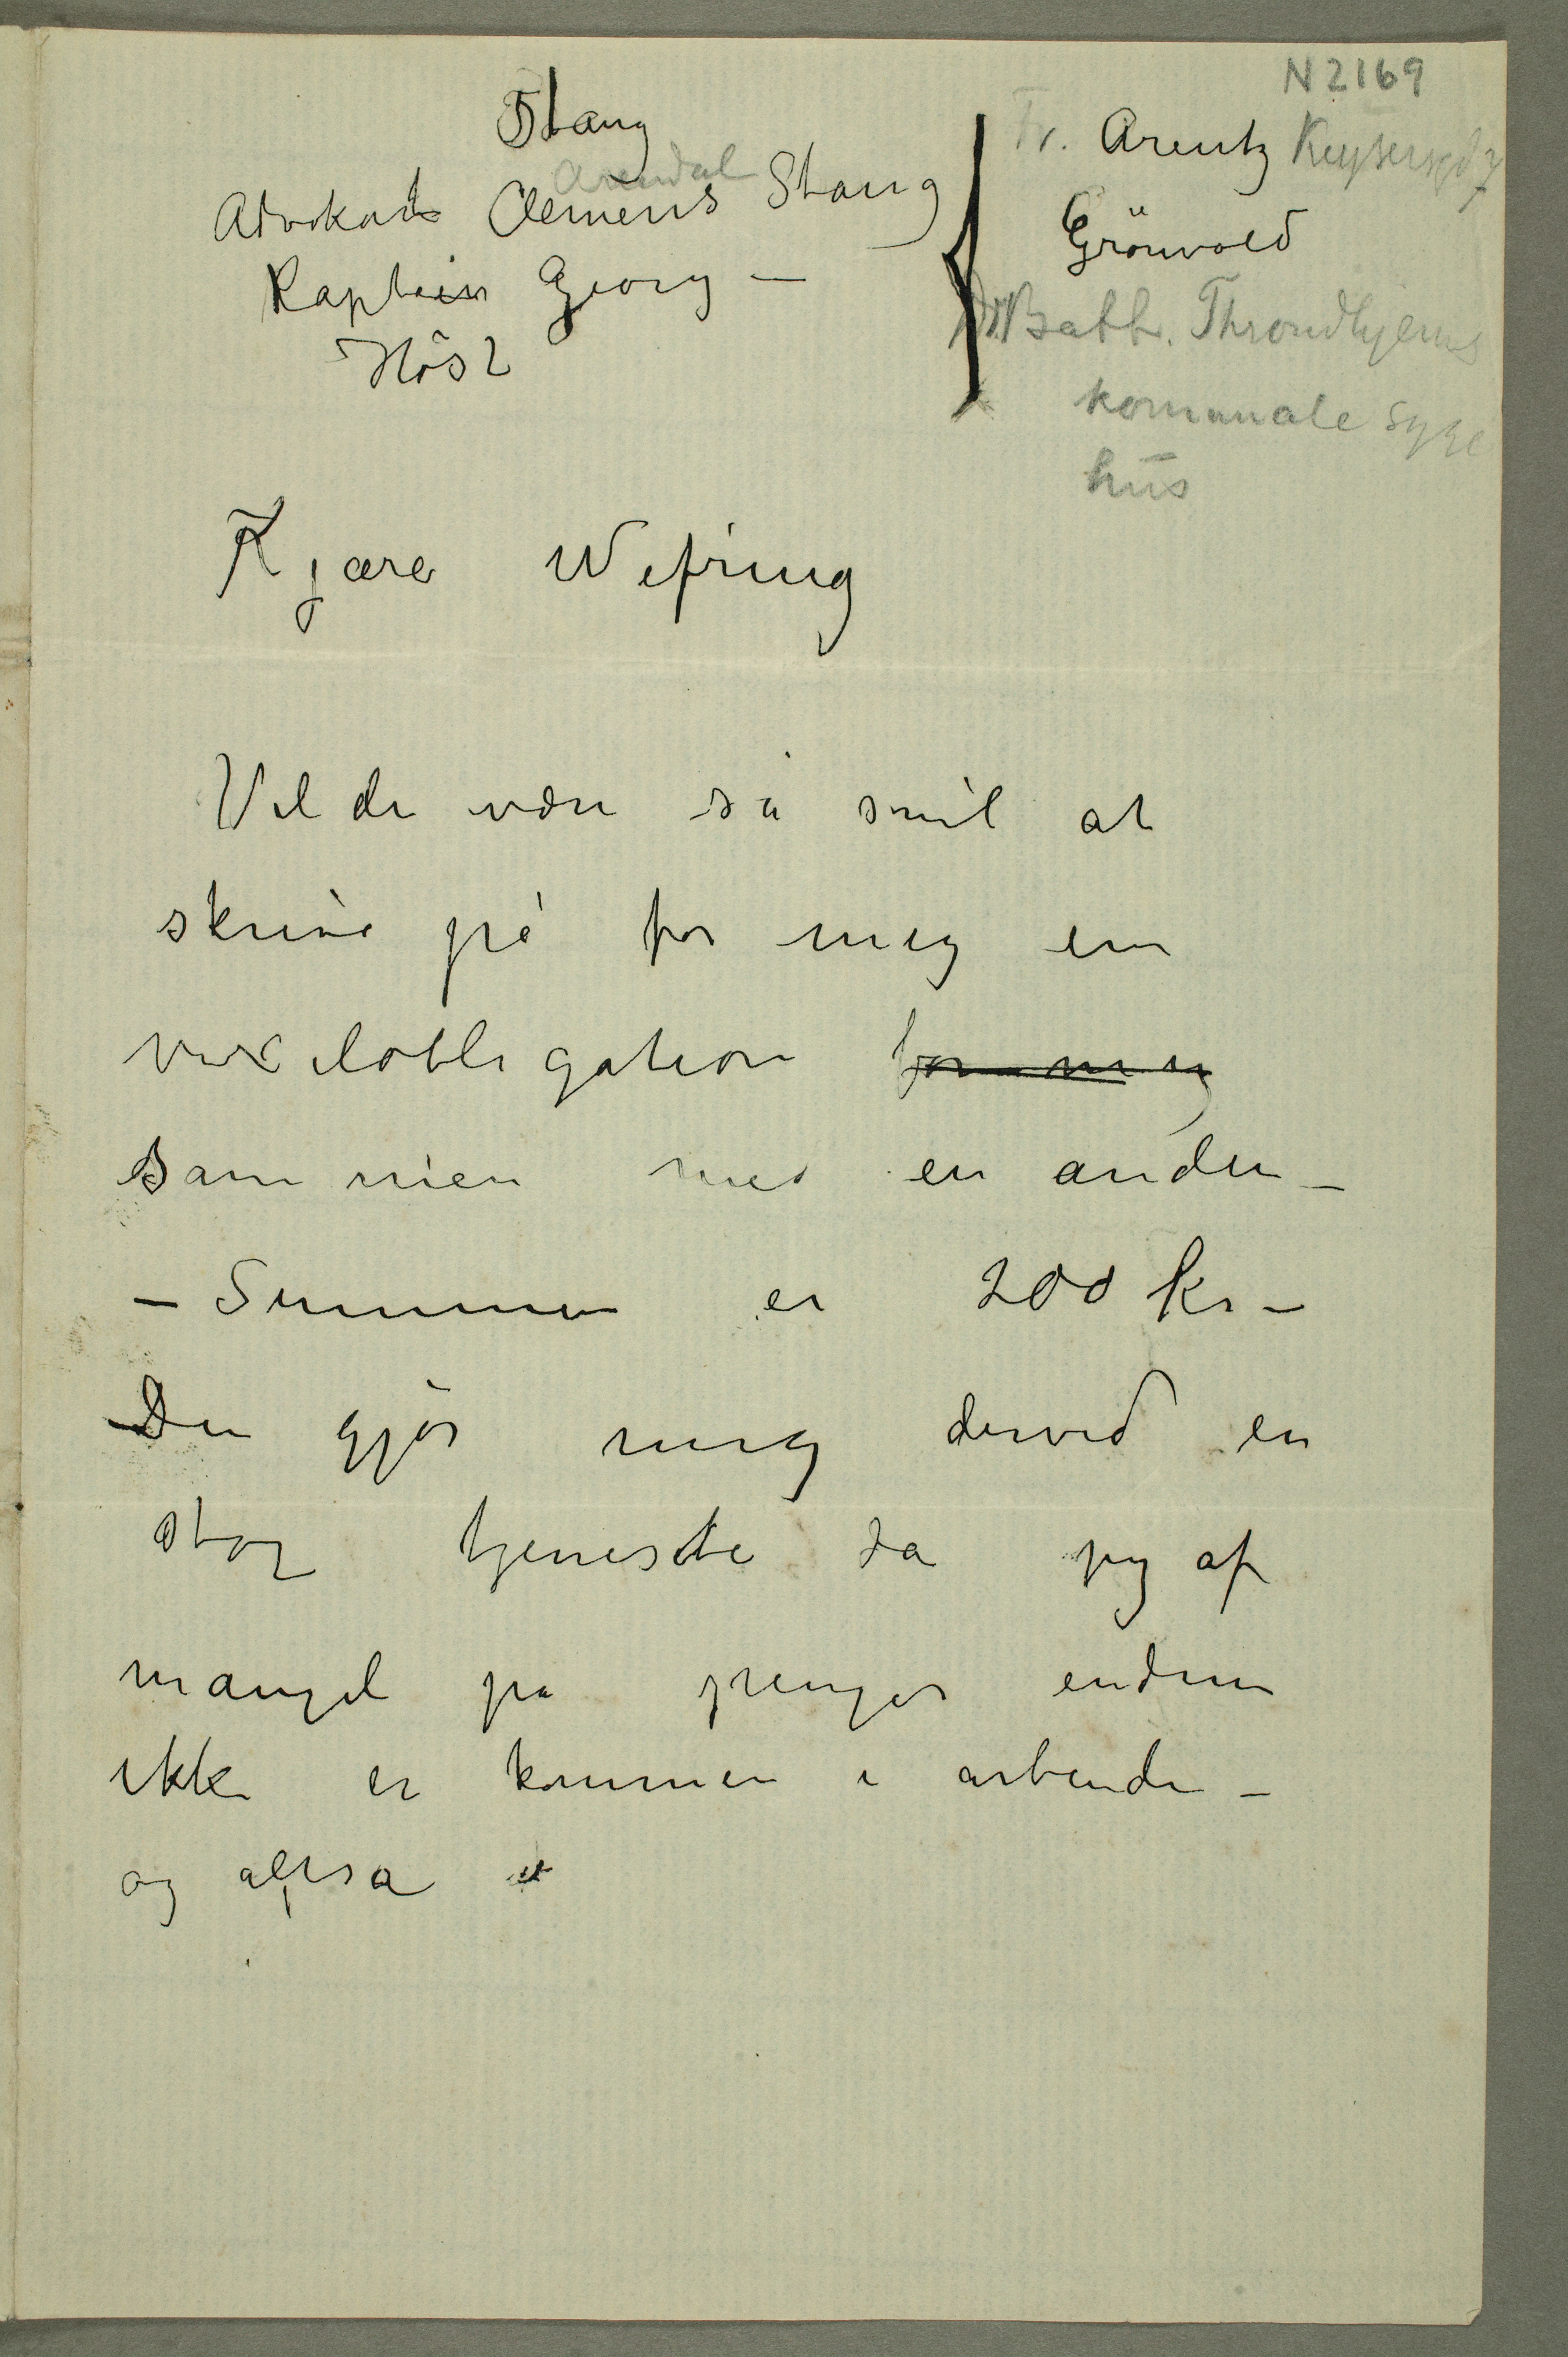 N 2169
Stang
Arendal
Advokat Clemens Stang
Kaptein Georg —
Høst
Fr. Arentz Keysersgd 7
Grönvold
Dr. Batt. Throndhjems
komunale syge
hus
Kjære Wefring
Vil de være så snil at
skrive på for mig en
vexelobligation for mig
sammen med en anden –
– Summen er 200 kr –
De gjør mig derved en
stor tjeneste da jeg af
mangel på penger endnu
ikke er kommen i arbeide –
og altså